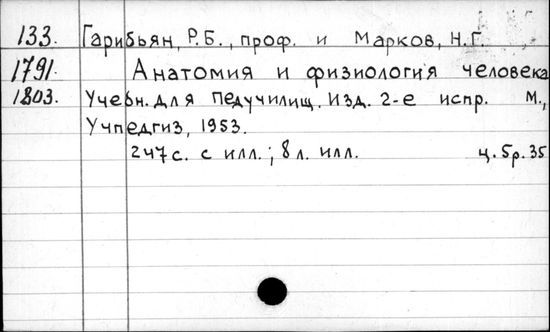 133. Гарибьян, Р.Б., проф. и Марков, Н.Г.
1791. Анатомия и физиология человека
1803. Учебн. для педучилищ. Изд. 2-е испр. М.,
Учпедгиз, 1953.
247 с. с илл.; 8 л. илл. ц. 5р. 35